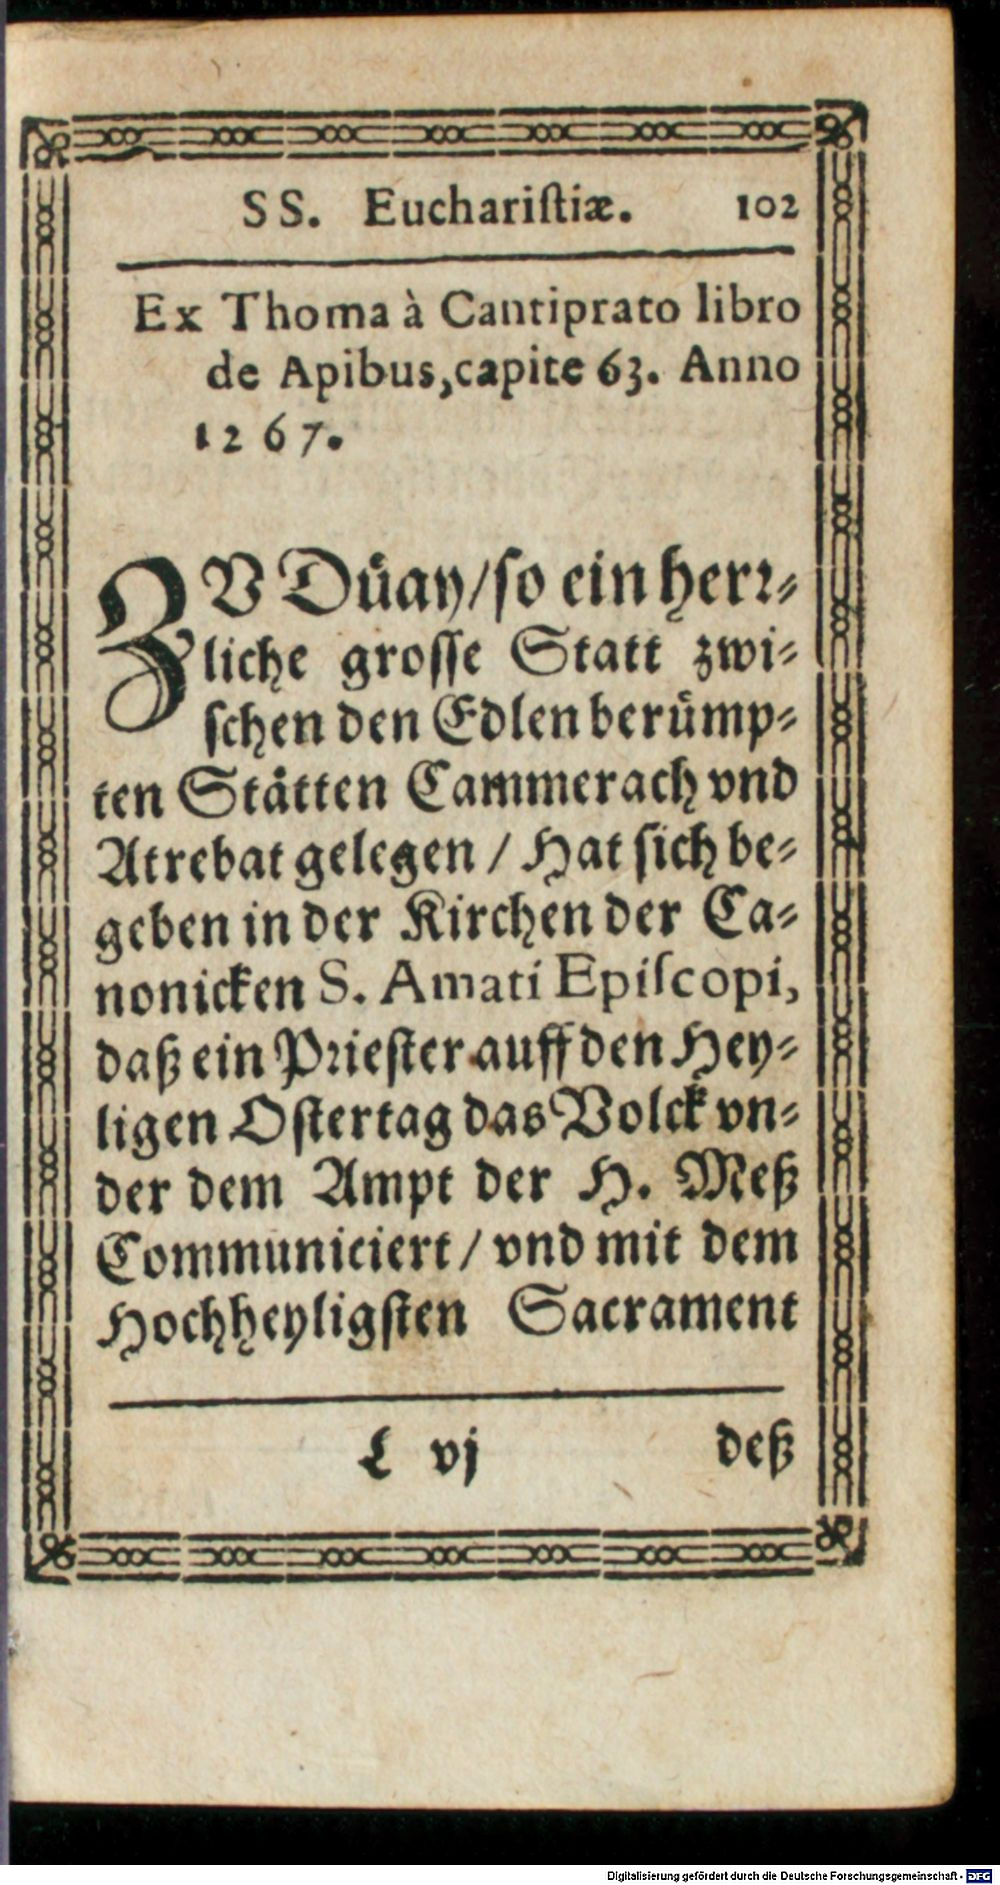 SS. Euchariſtiæ. 102
Ex Thoma à Cantiprato libro
de Apibus, capite 63. Anno
1267.
ZV Düay/ so ein herr-
liche grosse Statt zwi-
schen den Edlen berümp-
ten Stätten Cammerach vnd
Atrebat gelegen / Hat sich be-
geben in der Kirchen der Ca-
nonicken S. Amati Epiſcopi,
daß ein Priester auff den Hey-
ligen Ostertag das Volck vn-
der dem Ampt der H. Meß
Communiciert / vnd mit dem
Hochheyligsten Sacrament
L vj deß
Digitalisierung gefördert durch die Deutsche Forschungsgemeinschaft - DFG